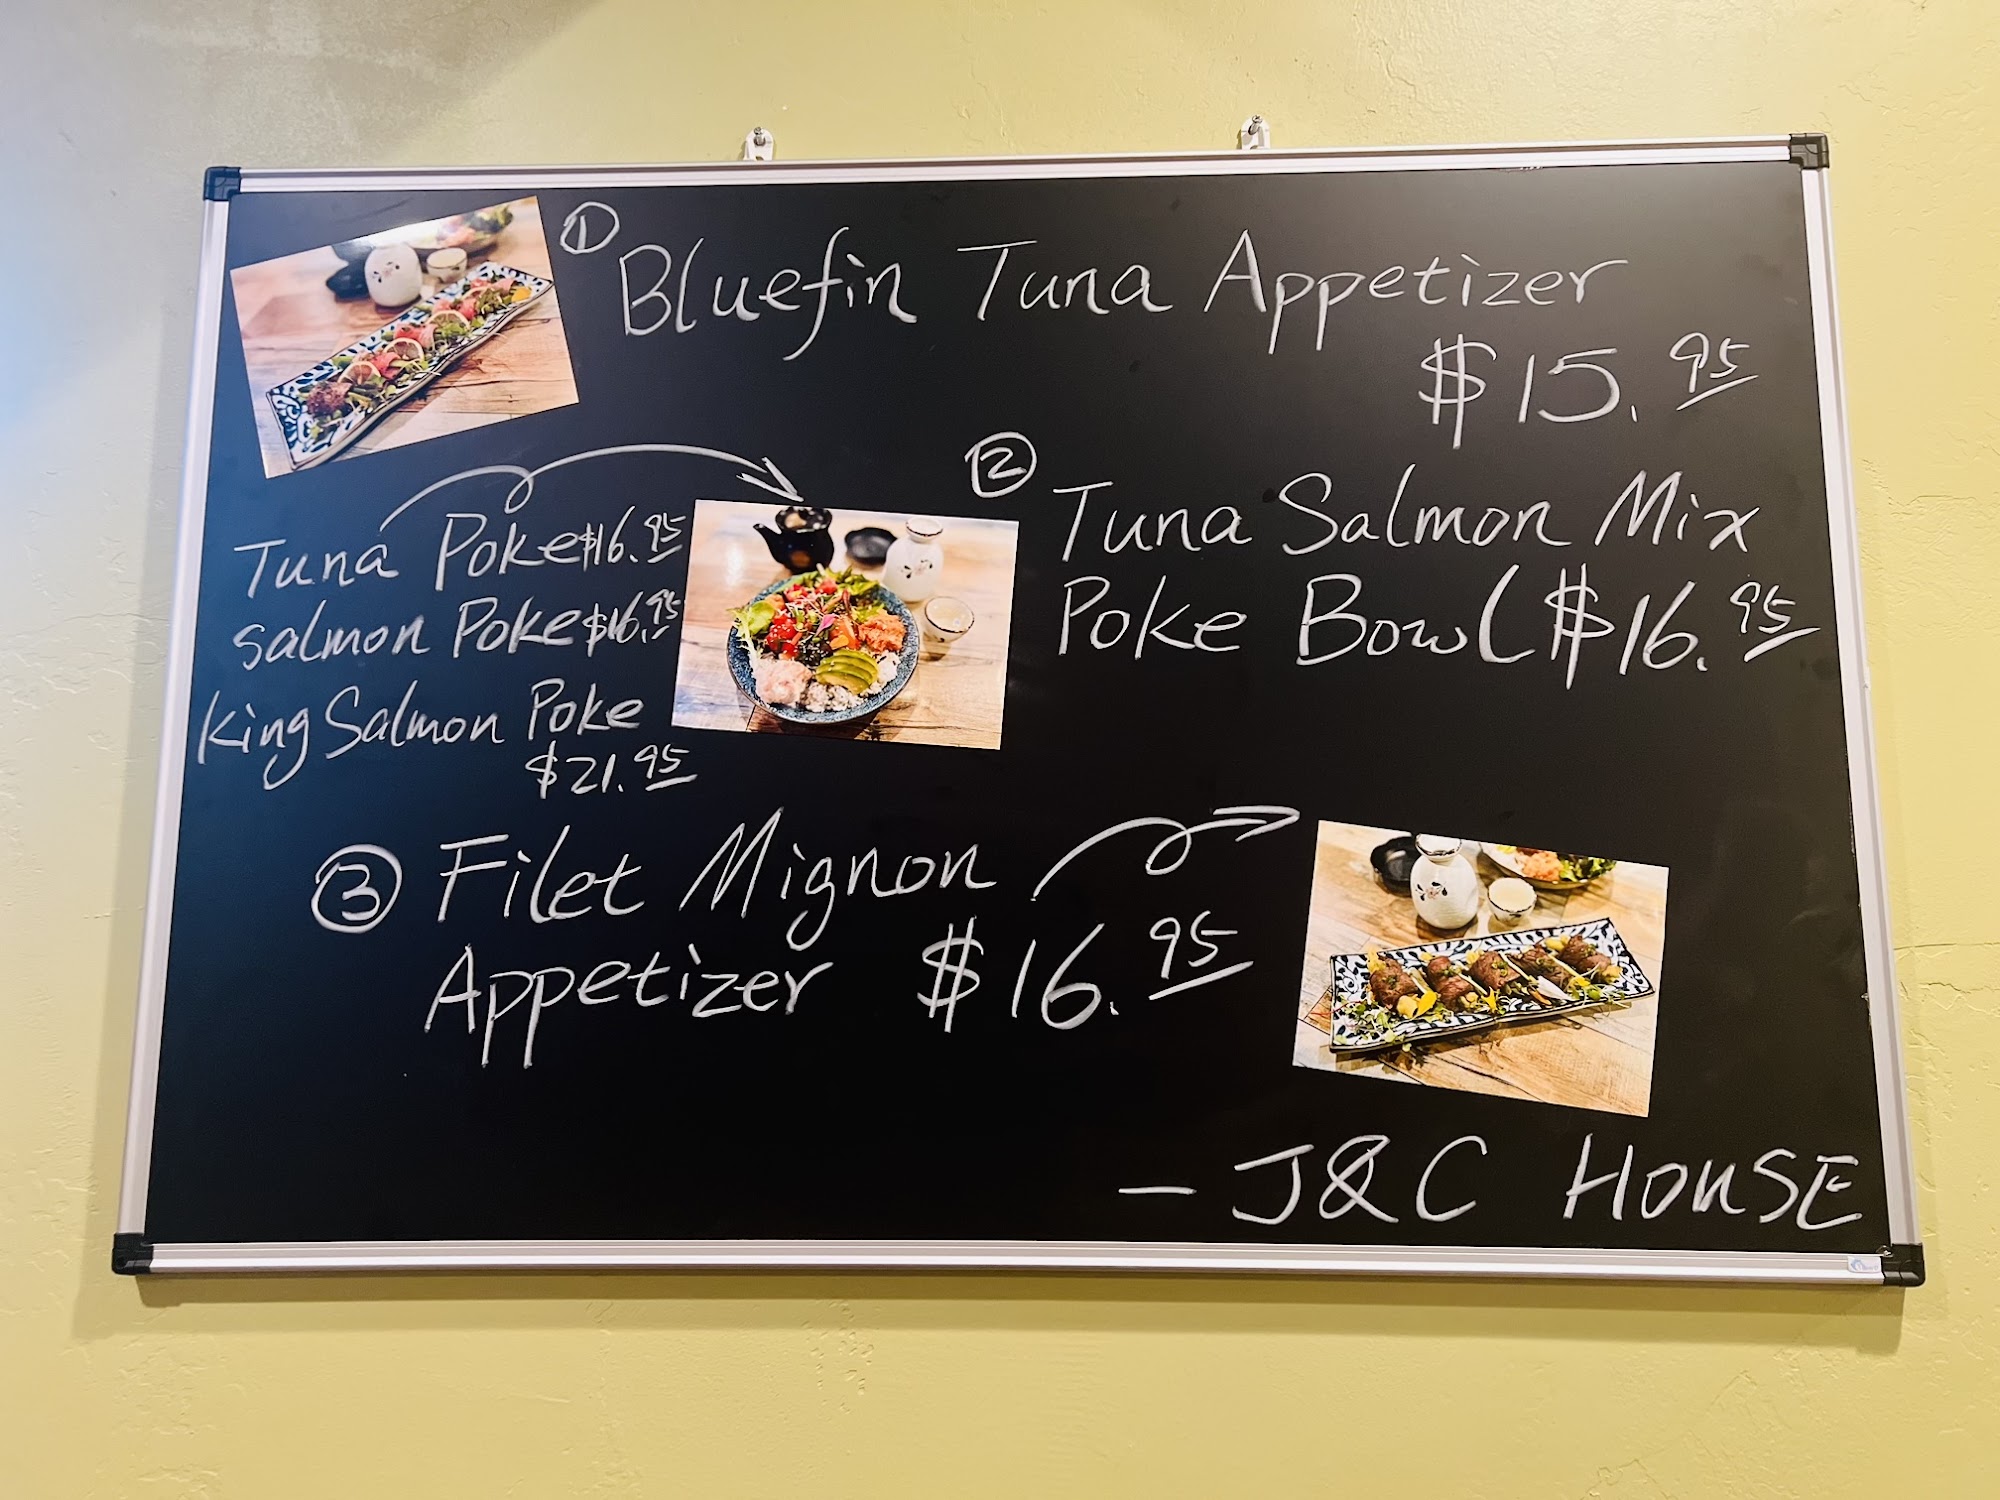 ① Bluefin Tuna Appetizer
$15.95
Tuna Poke $16.95
salmon Poke $16.95
King Salmon Poke
$21.95
② Tuna Salmon Mix
Poke Bowl $16.95
③ Filet Mignon
Appetizer $16.95
– J&C HOUSE